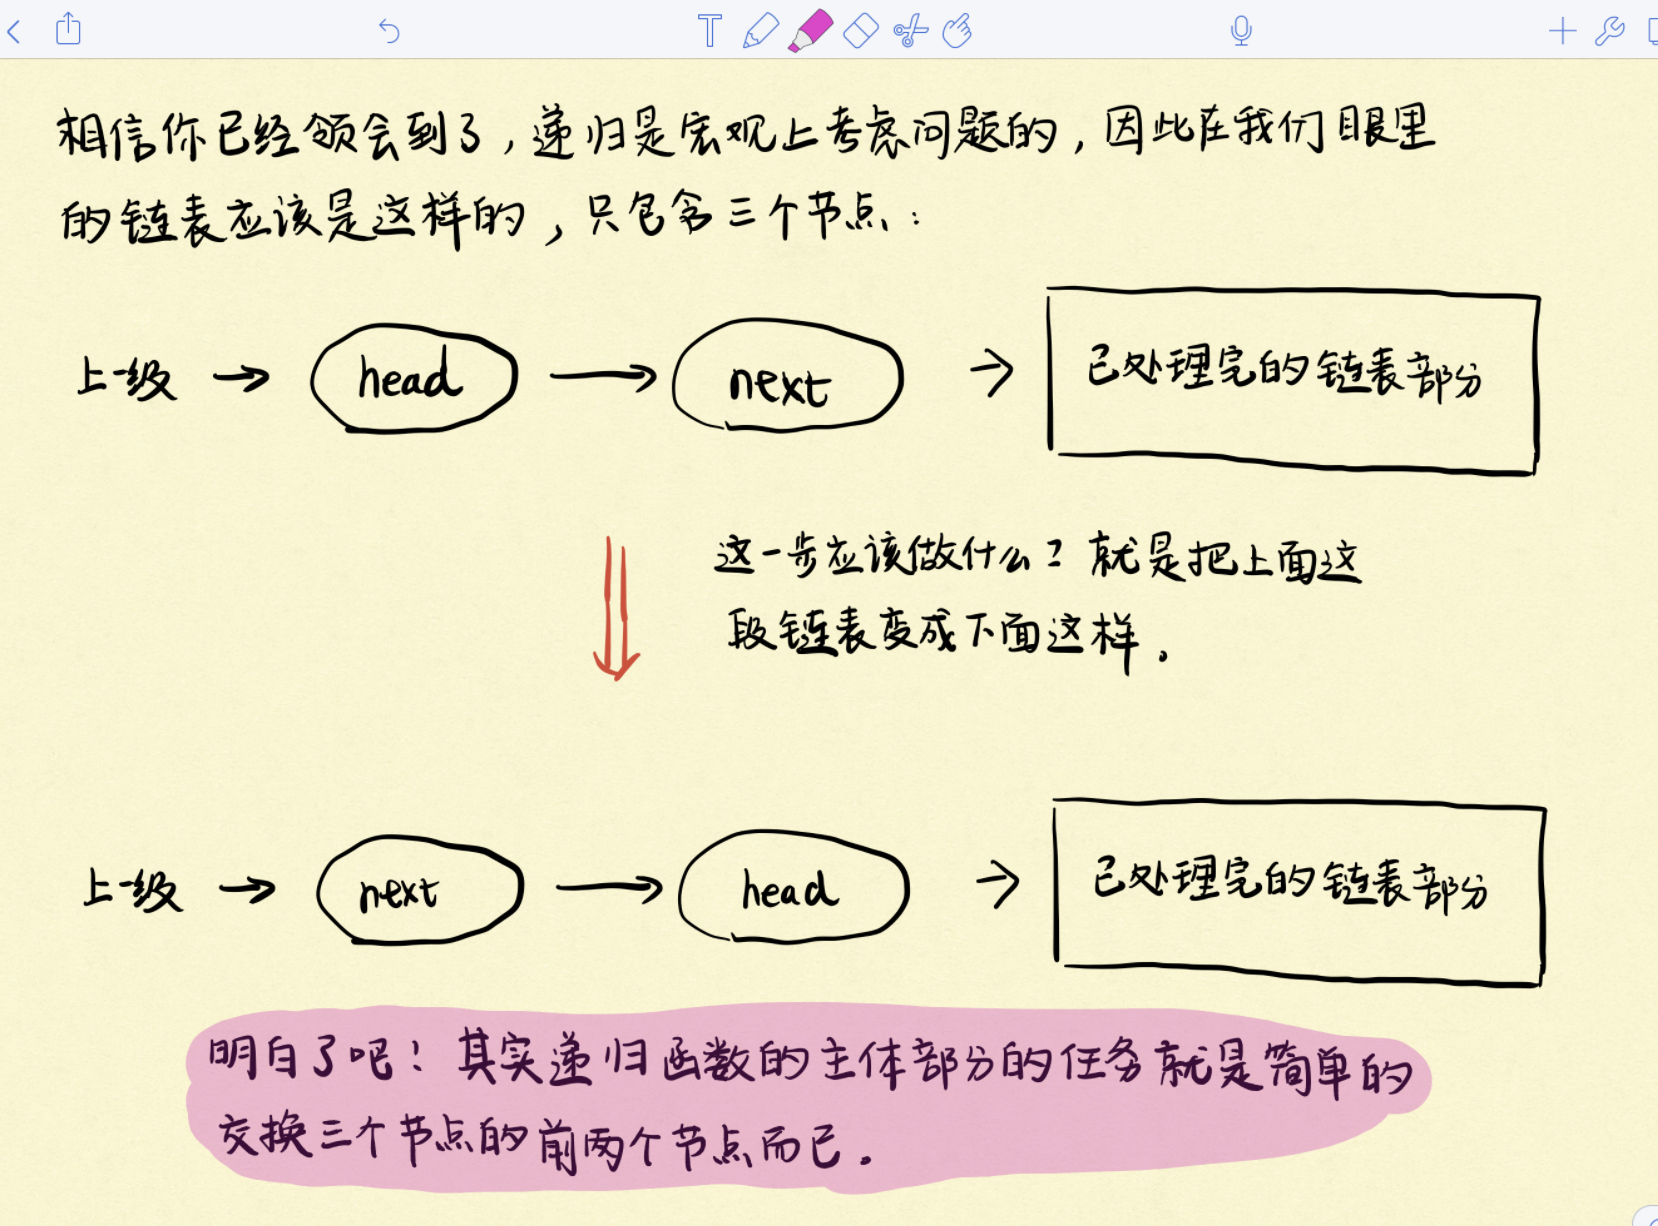 相信你已经领会到了，递归是宏观上考虑问题的，因此在我们眼里
的链表应该是这样的，只包含三个节点：
上一级 → head → next → 已处理完的链表部分
这一步应该做什么？就是把上面这
段链表变成下面这样。
上一级 → next → head → 已处理完的链表部分
明白了吧！其实递归函数的主体部分的任务就是简单的
交换三个节点的前两个节点而已。